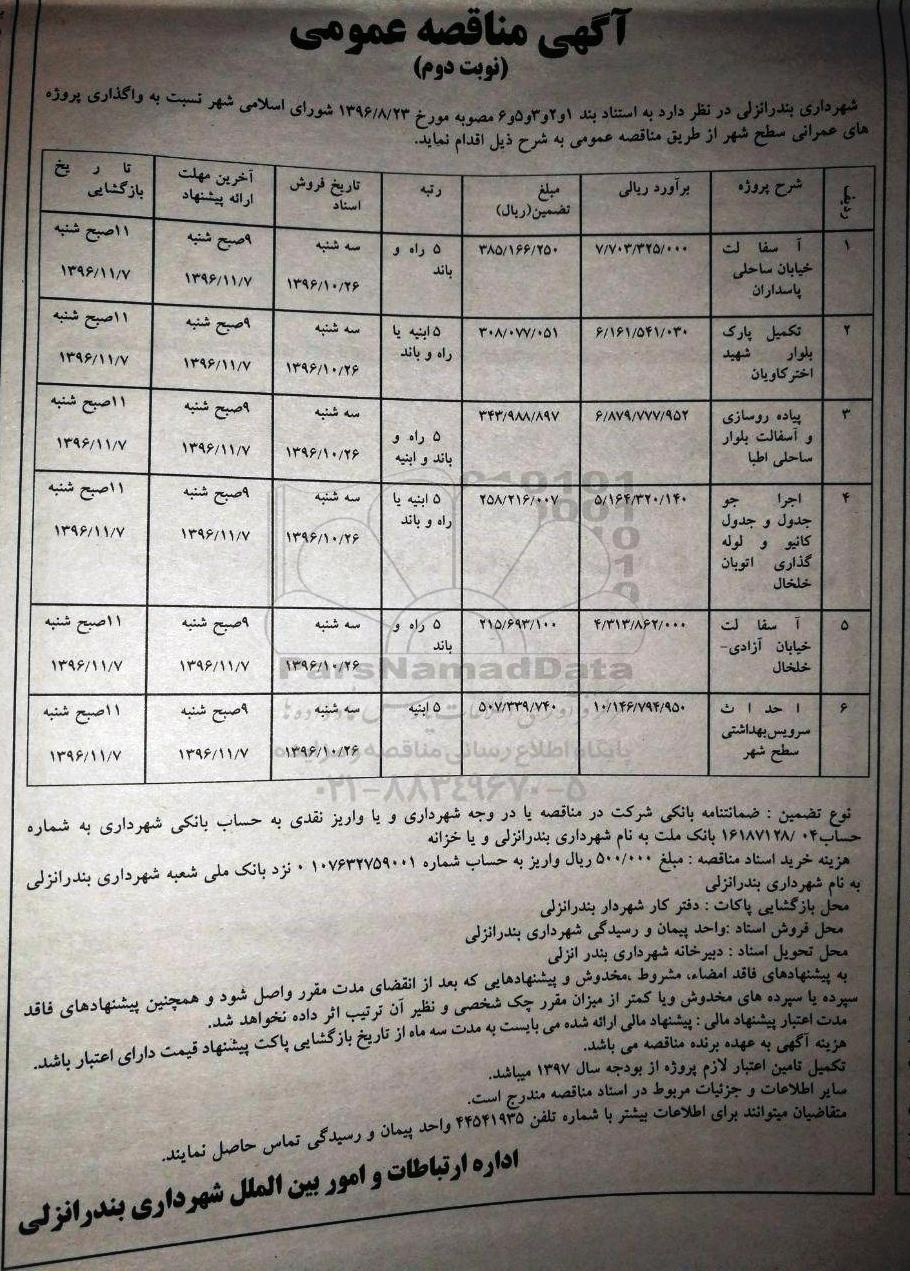 آگهی مناقصه عمومی
(نوبت دوم)
شهرداری بندرانزلی در نظر دارد به استناد بند ۱و۲و۳و۵و۶ مصوبه مورخ ۱۳۹۶/۸/۲۳ شورای اسلامی شهر نسبت به واگذاری پروژه
های عمرانی سطح شهر از طریق مناقصه عمومی به شرح ذیل اقدام نماید.
ردیف شرح پروژه برآورد ریالی مبلغ تضمین(ریال) رتبه تاریخ فروش اسناد آخرین مهلت ارائه پیشنهاد تاریخ بازگشایی
۱ آسفالت خیابان ساحلی پاسداران ۷/۷۰۳/۳۲۵/۰۰۰ ۳۸۵/۱۶۶/۲۵۰ ۵ راه و باند سه شنبه ۱۳۹۶/۱۰/۲۶ ۹صبح شنبه ۱۳۹۶/۱۱/۷ ۱۱صبح شنبه ۱۳۹۶/۱۱/۷
۲ تکمیل پارک بلوار شهید اخترکاویان ۶/۱۶۱/۵۴۱/۰۳۰ ۳۰۸/۰۷۷/۰۵۱ ۵ ابنیه یا راه و باند سه شنبه ۱۳۹۶/۱۰/۲۶ ۹صبح شنبه ۱۳۹۶/۱۱/۷ ۱۱صبح شنبه ۱۳۹۶/۱۱/۷
۳ پیاده روسازی و آسفالت بلوار ساحلی اطبا ۶/۸۷۹/۷۷۷/۹۵۲ ۳۴۳/۹۸۸/۸۹۷ ۵ راه و باند و ابنیه سه شنبه ۱۳۹۶/۱۰/۲۶ ۹صبح شنبه ۱۳۹۶/۱۱/۷ ۱۱صبح شنبه ۱۳۹۶/۱۱/۷
۴ اجرا جو جدول و جدول کانیو و لوله گذاری اتوبان خلخال ۵/۱۶۴/۳۲۰/۱۴۰ ۲۵۸/۲۱۶/۰۰۷ ۵ ابنیه یا راه و باند سه شنبه ۱۳۹۶/۱۰/۲۶ ۹صبح شنبه ۱۳۹۶/۱۱/۷ ۱۱صبح شنبه ۱۳۹۶/۱۱/۷
۵ آسفالت خیابان آزادی- خلخال ۴/۳۱۳/۸۶۲/۰۰۰ ۲۱۵/۶۹۳/۱۰۰ ۵ راه و باند سه شنبه ۱۳۹۶/۱۰/۲۶ ۹صبح شنبه ۱۳۹۶/۱۱/۷ ۱۱صبح شنبه ۱۳۹۶/۱۱/۷
۶ احداث سرویس‌بهداشتی سطح شهر ۱۰/۱۴۶/۷۹۴/۹۵۰ ۵۰۷/۳۳۹/۷۴۰ ۵ ابنیه سه شنبه ۱۳۹۶/۱۰/۲۶ ۹صبح شنبه ۱۳۹۶/۱۱/۷ ۱۱صبح شنبه ۱۳۹۶/۱۱/۷
ParsNamadData
پایگاه اطلاع رسانی مناقصه و مزایده
۰۲۱-۸۸۳۴۹۶۷۰-۵
نوع تضمین : ضمانتنامه بانکی شرکت در مناقصه یا در وجه شهرداری و یا واریز نقدی به حساب بانکی شهرداری به شماره
حساب۰۴ /۱۶۱۸۷۱۲۸ بانک ملت به نام شهرداری بندرانزلی و یا خزانه
هزینه خرید اسناد مناقصه : مبلغ ۵۰۰/۰۰۰ ریال واریز به حساب شماره ۰۱۰۷۶۳۲۷۵۹۰۰۱ نزد بانک ملی شعبه شهرداری بندرانزلی
به نام شهرداری بندرانزلی
محل بازگشایی پاکات : دفتر کار شهردار بندرانزلی
محل فروش اسناد :واحد پیمان و رسیدگی شهرداری بندرانزلی
محل تحویل اسناد : دبیرخانه شهرداری بندر انزلی
به پیشنهادهای فاقد امضاء، مشروط ،مخدوش و پیشنهادهایی که بعد از انقضای مدت مقرر واصل شود و همچنین پیشنهادهای فاقد
سپرده یا سپرده های مخدوش ویا کمتر از میزان مقرر چک شخصی و نظیر آن ترتیب اثر داده نخواهد شد.
مدت اعتبار پیشنهاد مالی : پیشنهاد مالی ارائه شده می بایست به مدت سه ماه از تاریخ بازگشایی پاکت پیشنهاد قیمت دارای اعتبار باشد.
هزینه آگهی به عهده برنده مناقصه می باشد.
تکمیل تامین اعتبار لازم پروژه از بودجه سال ۱۳۹۷ میباشد.
سایر اطلاعات و جزئیات مربوط در اسناد مناقصه مندرج است.
متقاضیان میتوانند برای اطلاعات بیشتر با شماره تلفن ۴۴۵۴۱۹۳۵ واحد پیمان و رسیدگی تماس حاصل نمایند.
اداره ارتباطات و امور بین الملل شهرداری بندرانزلی